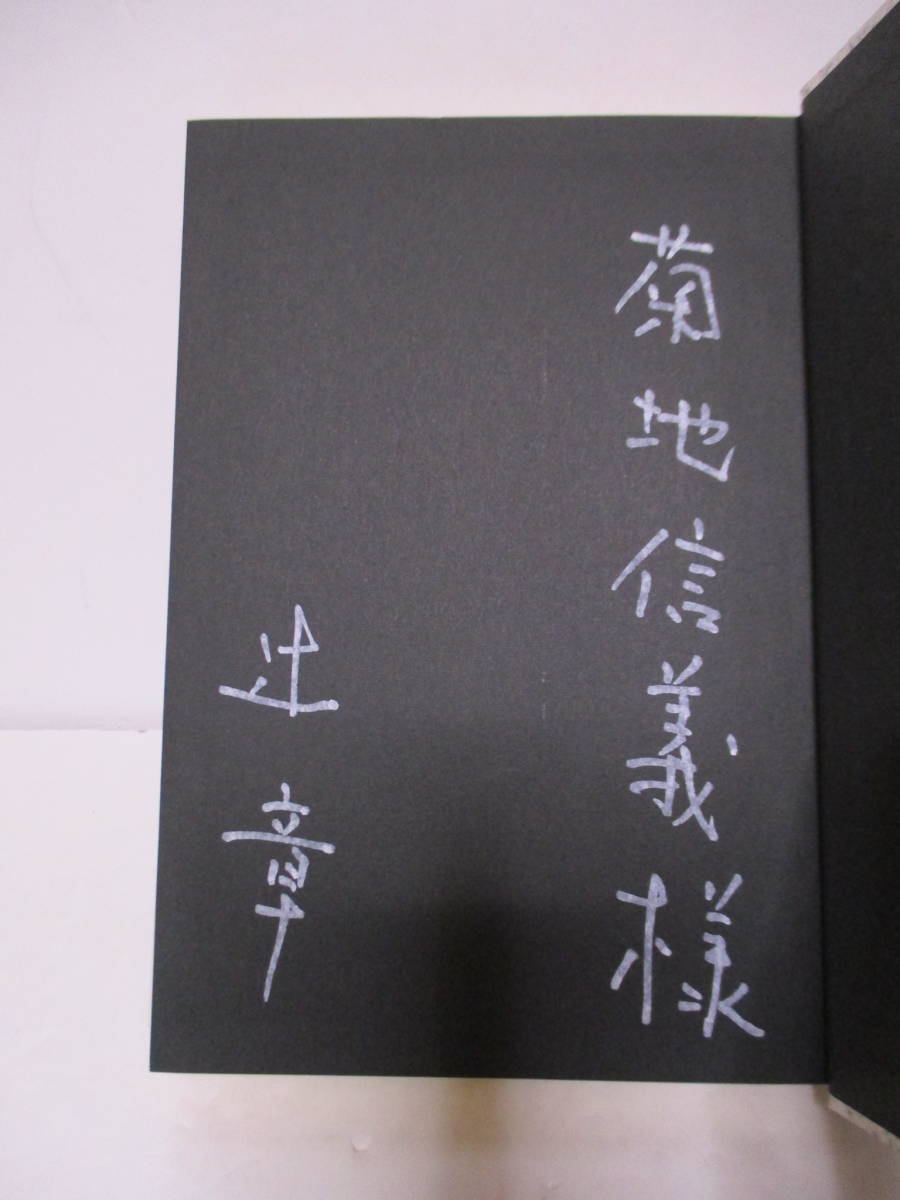 菊地信義様
辻章